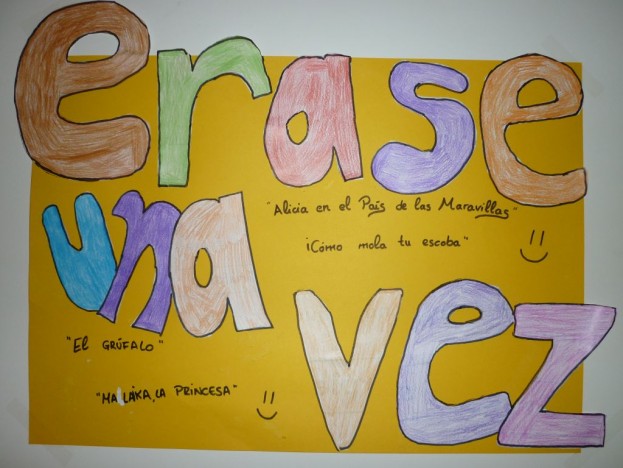 erase
una
"Alicia en el País de las Maravillas"
¡Cómo mola tu escoba"
vez
"El GRÚFALO"
"MALLÁKA, LA PRINCESA"